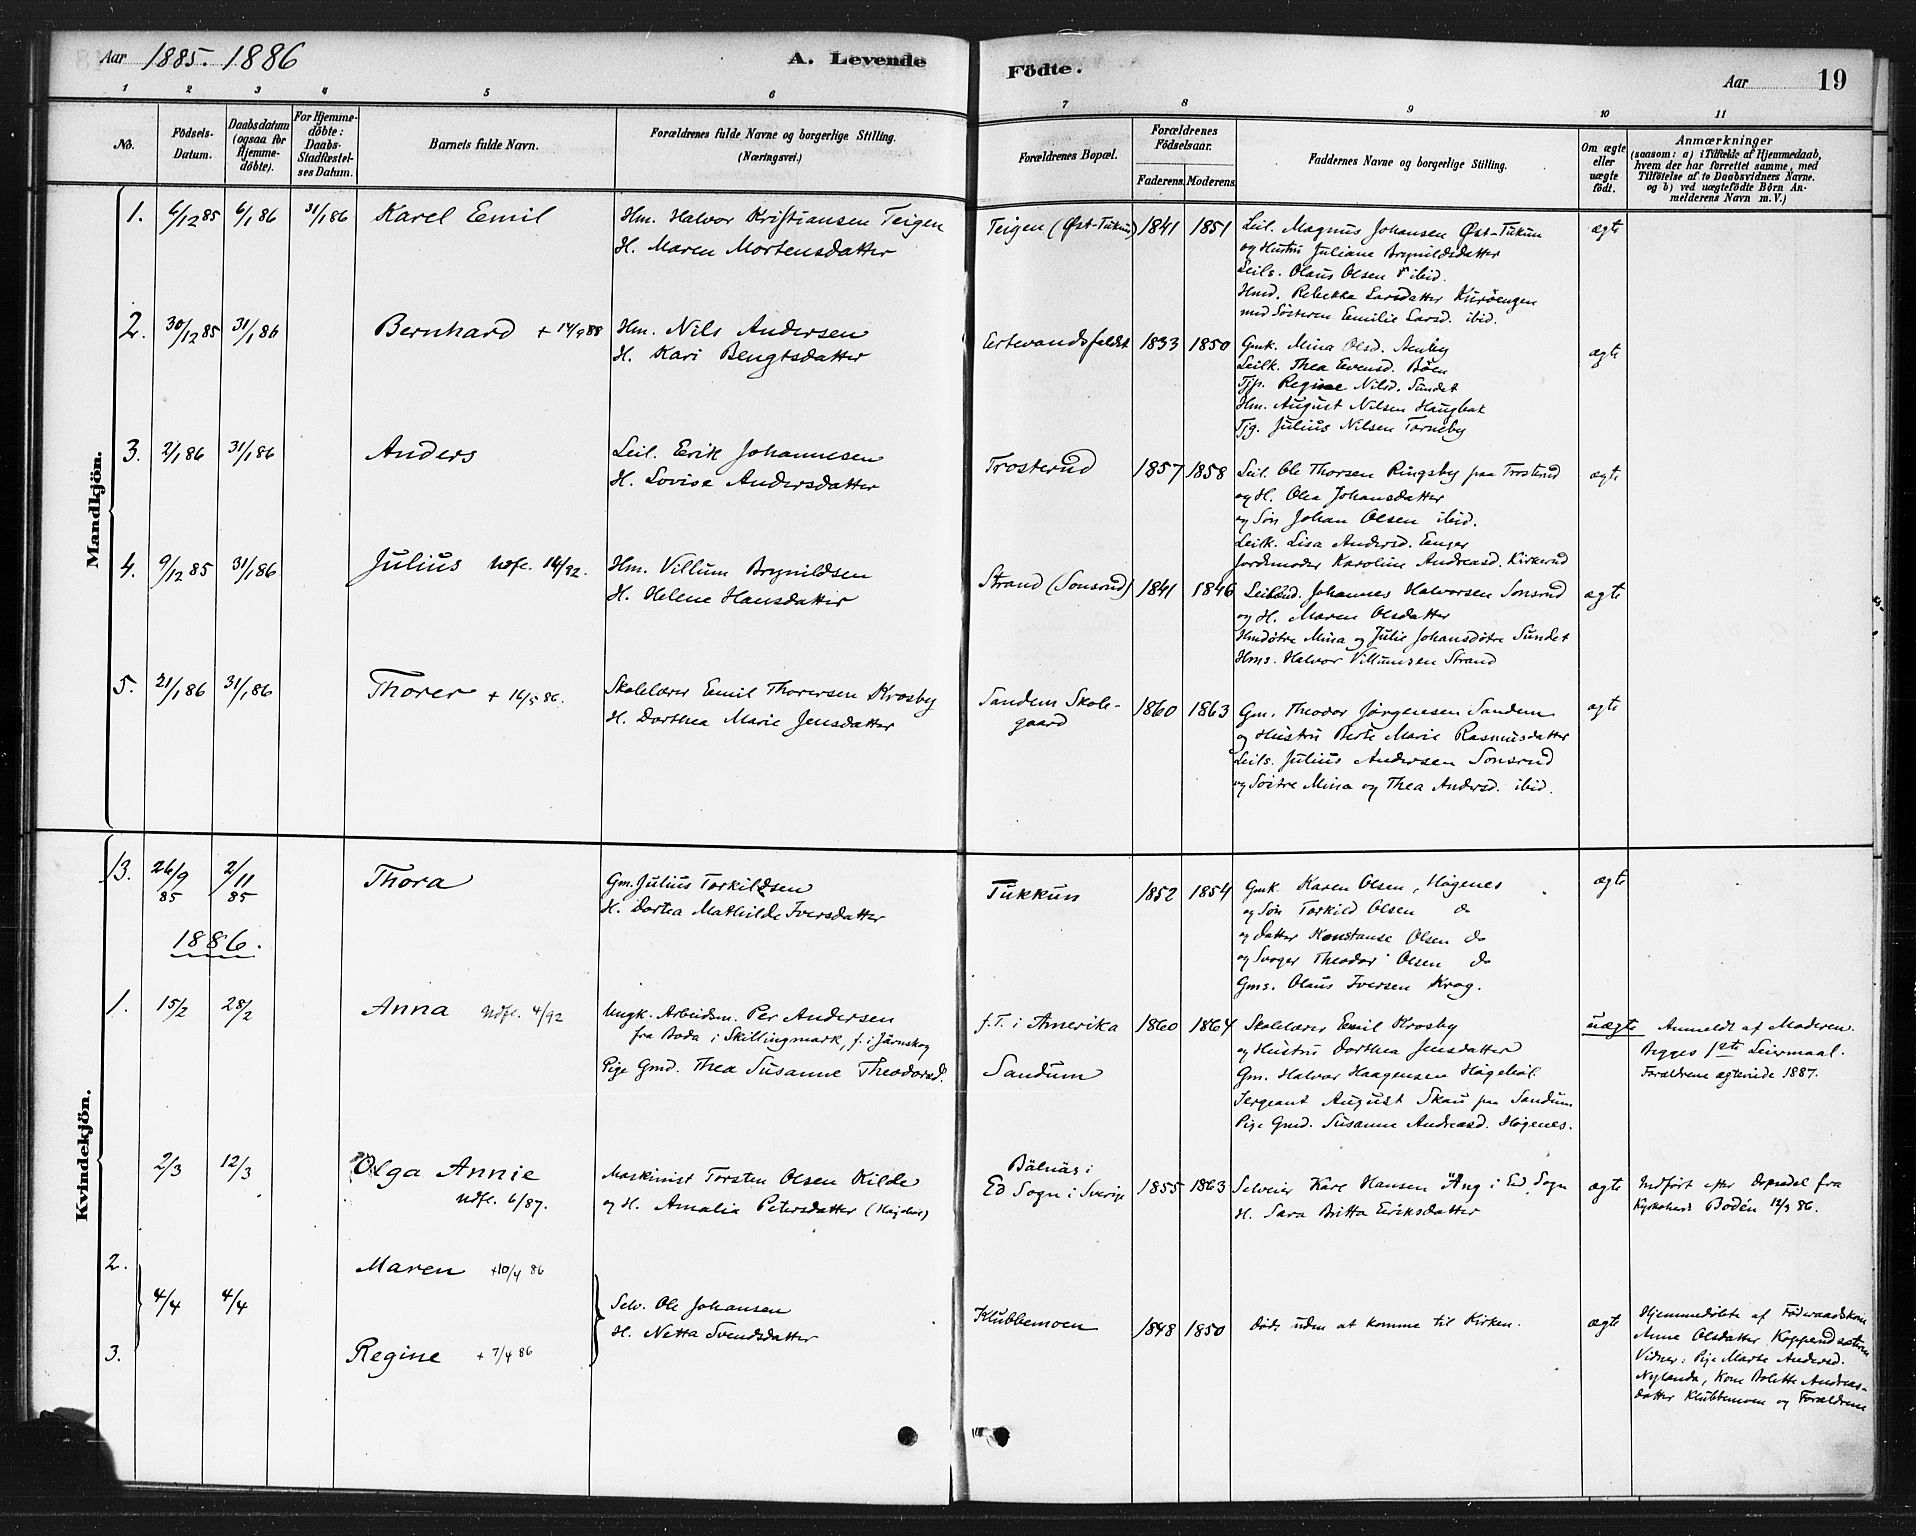 Aar 1885. 1886
A. Levende
Födte.
Aar
19
1
2
3
4
5
6
7
8
9
10
11
No.
Födsels-
Datum.
Daabsdatum
(ogsaa for
Hjemme-
döbte).
For Hjemme-
döbte:
Daabs-
Stadfæstel-
ses Datum.
Barnets fulde Navn.
Forældrenes fulde Navne og borgerlige Stilling.
(Næringsvei.)
Forældrenes Bopæl.
Forældrenes
Födselsaar.
Faderens.
Moderens.
Faddernes Navne og borgerlige Stilling.
Om ægte
eller
uægte
födt.
Anmærkninger
(saasom: a) i Tilfælde af Hjemmedaab,
hvem der har forrettet samme, med
Tilföielse af to Daabsvidners Navne.
og b) ved uægtefödte Börn An-
melderens Navn m.V.)
Mandkjön.
1. 6/12 85 6/1 86 31/1 86 Karel Emil
Hm. Halvor Kristiansen Teigen
H. Maren Mortensdatter
Teigen (Øst-Tukun) 1841 1851
Leil. Magnus Johansen Øst-Tukun
og Hustru Juliane Brynildsdatter
Leils. Olaus Olsen ibid.
Hmd. Rebekka Larsdatter Kurøengen
med Søsteren Emilie Larsd. ibid.
ægte
2. 30/12 85 31/1 86 Bernhard + 14/9 88
Hm. Nils Andersen
H. Kari Bengtsdatter
Ertevandsfaldet 1833 1850
Gmk. Mina Olsd. Aenby
Leilk. Thea Evensd. Bøen
Tjp. Regine Nilsd. Sandet
Hm. August Nilsen Haugbak
Tjg. Julius Nilsen Torneby
ægte
3. 2/1 86 31/1 86 Anders
Leil. Erik Johannesen
H. Lovise Andersdatter
Trosterud 1857 1858
Leil. Ole Thorsen Ringsby paa Trosterud
og H. Olea Johansdatter
og Søn Johan Olsen ibid.
Leilk. Lisa Andersd. Enger
Jordemoder Karoline Andreasd. Kirkerud
ægte
4. 9/12 85 31/1 86 Julius Udfl. 14/92.
Hm. Villum Brynildsen
H. Helene Hansdatter
Strand (Sonsrud) 1841 1846
Leilænd. Johannes Halvorsen Sonsrud
og H. Maren Olsdatter
Hmdøtre Mina og Julie Johansdøtre Sundet
Hms. Halvor Villumsen Strand
ægte
5. 21/1 86 31/1 86 Thorer + 16/5 86.
Skolelærer Emil Thorersen Krosby
H. Dorthea Marie Jensdatter
Sandem Skole-
gaard 1860 1863
Gm. Theodor Jørgensen Sandem
og Hustru Berte Marie Rasmusdatter
Leils. Julius Andersen Sonsrud
og Søstre Mina og Thea Andersd. ibid.
ægte
Kvindekjön.
13. 26/9 85 2/11 85 Thora
Gm. Julius Torkildsen
H. Dortea Mathilde Iversdatter
Tukkun 1852 1854
Gmk Karen Olsen, Høgenes
og Søn Torkild Olsen do
og Datter Konstanse Olsen do
og Svoger Theodor Olsen do
Gms. Olaus Iversen Krog.
ægte
1886.
1. 15/2 28/2 Anna Udfl. 4/92
Ungk. Arbeidsm. Per Andersen
fra Boda i Skillingmark, f. i Järnskog
Pige Gmd. Thea Susanne Theodorsd.
f.T. i Amerika 1860 1864
Sandum
Skolelærer Emil Krosby
og Hustru Dorthea Jensdatter
Gm. Halvor Haagensen Høgehøl
Sergeant August Skau paa Sandum
Pige Gmd. Susanne Andreasd. Høgenes.
uægte
Anmeldt af Moderen.
Begges 1ste Leiermaal.
Forældrene ægteviede 1887.
2/3 12/3 Olga Annie
Udfl. 6/87.
Maskinist Torsten Olsen Kilde
og H. Amalia Petersdatter
Bälnäs i
Ed Sogn i Sverige 1855 1863
Selveier Karl Hansen Äng i Ed Sogn
H. Sara Britta Eriksdatter
ægte
Indført efter Dopsedel fra
Kyrkoherde Bodén 12/3 86.
2. Maren +10/4 86
4/4 4/4
Selv. Ole Johansen
H. Netta Svendsdatter
3. Regine + 7/4 86
Klubbemoen 1848 1850
Døde uden at komme til Kirken.
ægte
Hjemmedøbte af Føderaadskone
Anne Olsdatter Koppendsætren
Vidner: Pige Marte Andersd.
Nylende, Kone Bolette Andreas-
datter Klubbemoen og Forældrene